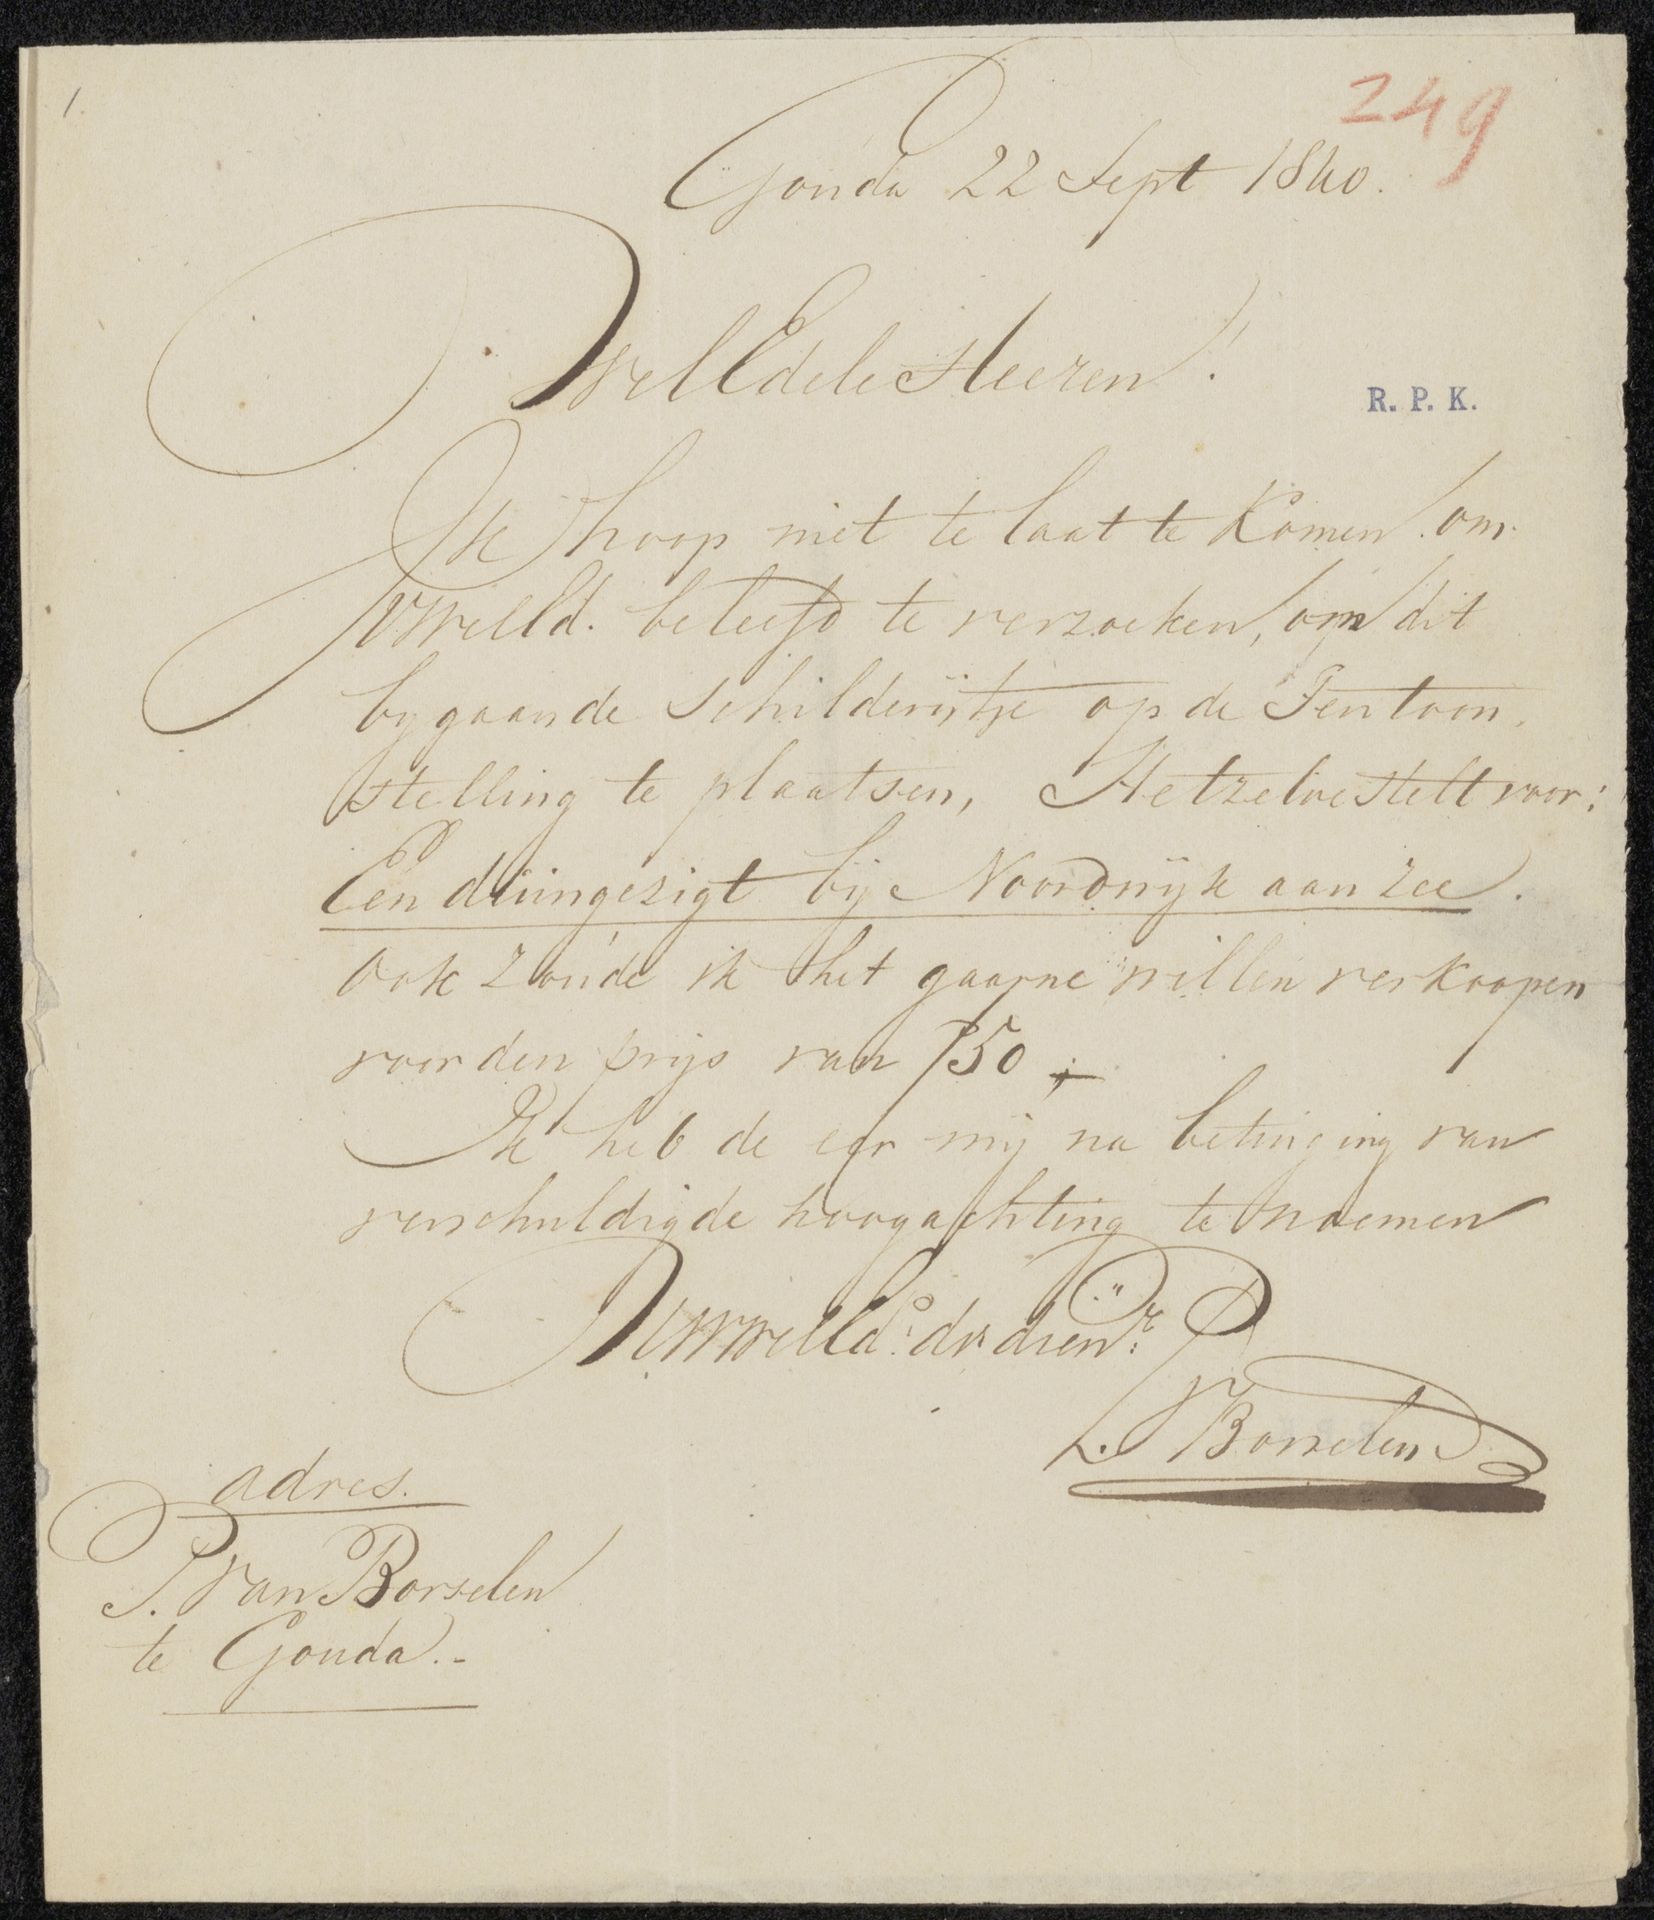 1.
249
Gouda 22 Sept 1840.
WelEdele Heeren!
R. P. K.
Ik hoop niet te laat te Komen om
UWelEd. beleefd te verzoeken, om dit
bygaande Schilderijtje op de Tentoon,
stelling te plaatsen, Hetzelve stelt voor:
Een duingezigt bij Noordwijk aan Zee.
Ook zoude ik het gaarne willen verkoopen
voor den prijs van ƒ50,-
Ik heb de eer mij na betuiging van
verschuldigde hoogachting te noemen
UWWelEd: dw dienr:
V Borselen
adres.
P. Van Borselen
te Gouda.-